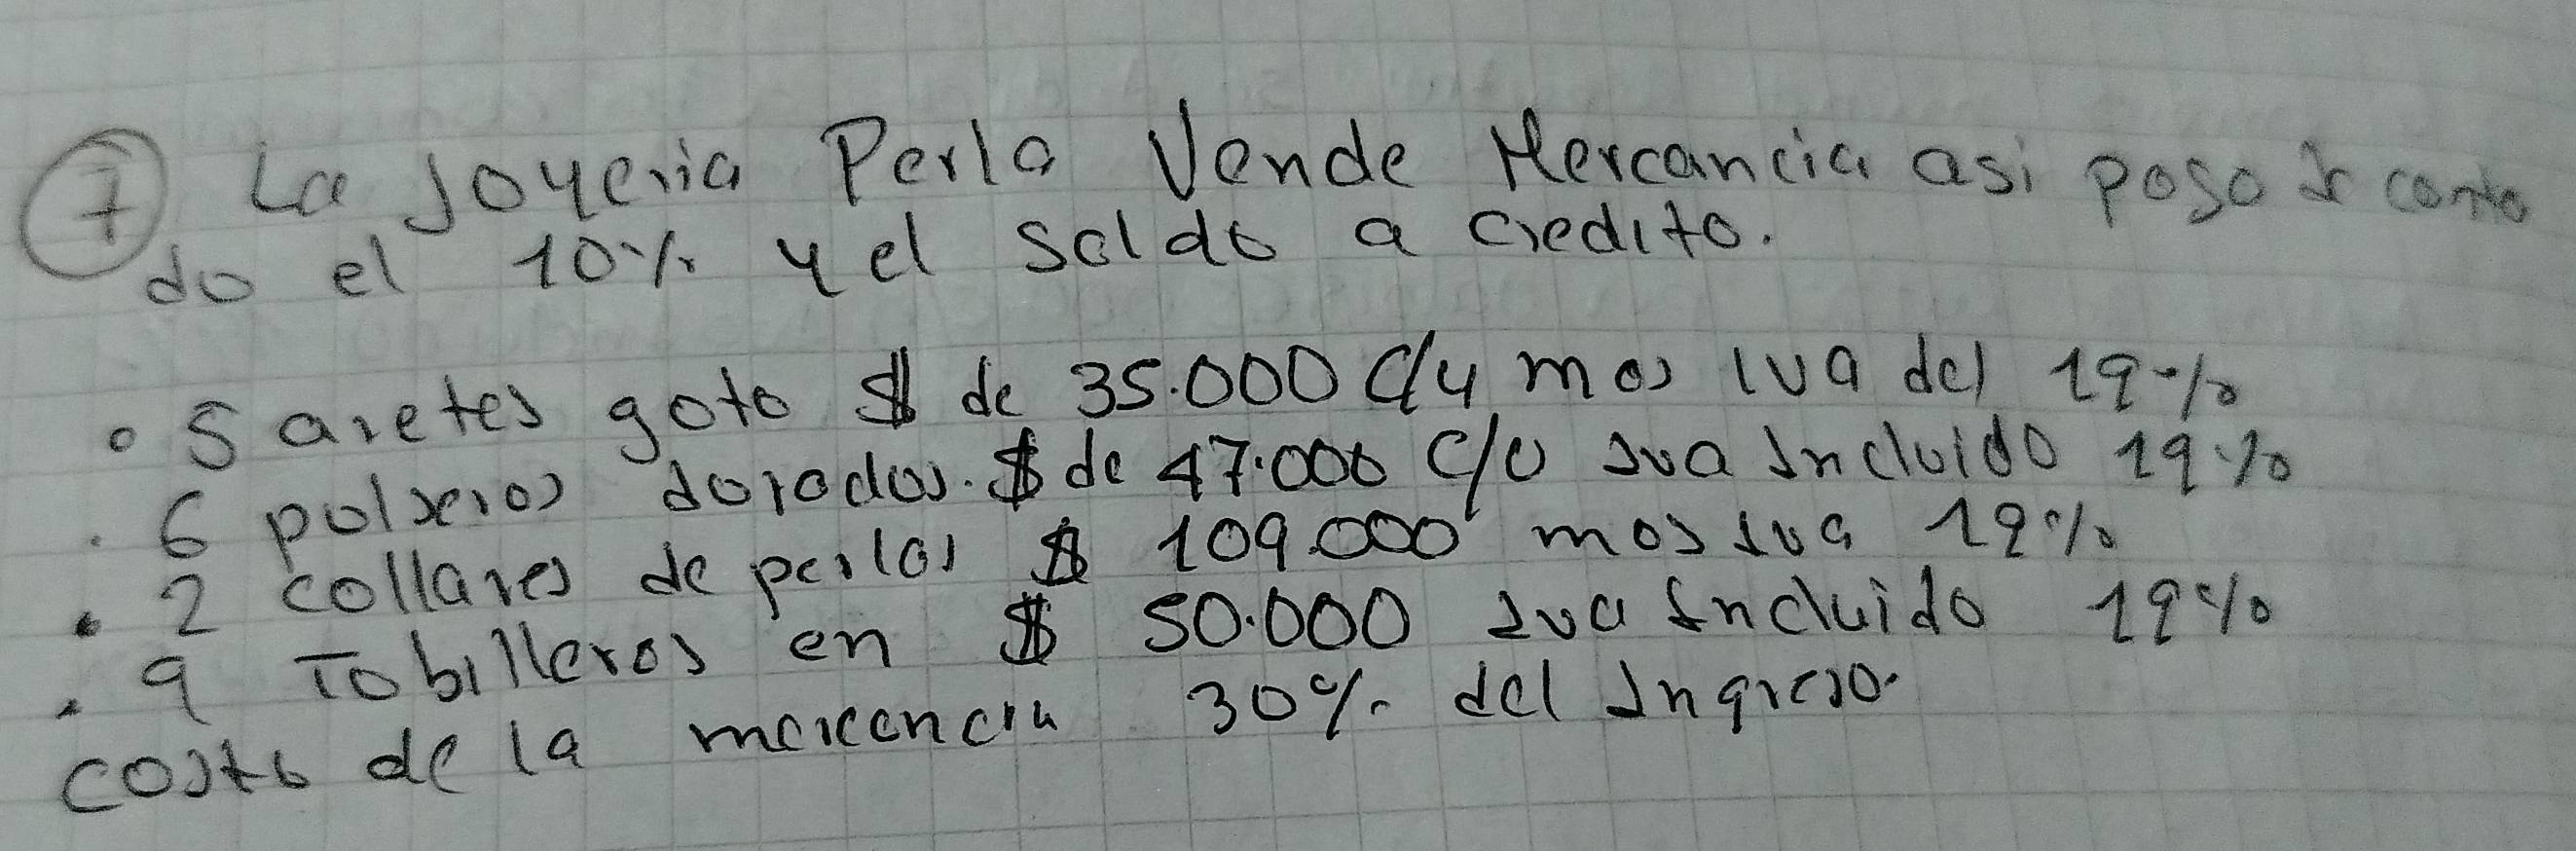 7 La Joyeria Perla Vende Mercancia asi poso conta
do el 10% y el saldo a credito.
• 5 aretes gota $ de 35.000 c/u mas iva del 19%
. 6 pulseras doradas. $ de 47.000 c/u Iva Incluido 19%
. 2 collares de perlas $ 109.000 mas iva 19%
. 9 Tobilleras en $ 50.000 Iva Incluido 19%
costo de la mercancia 30% del Ingreso.